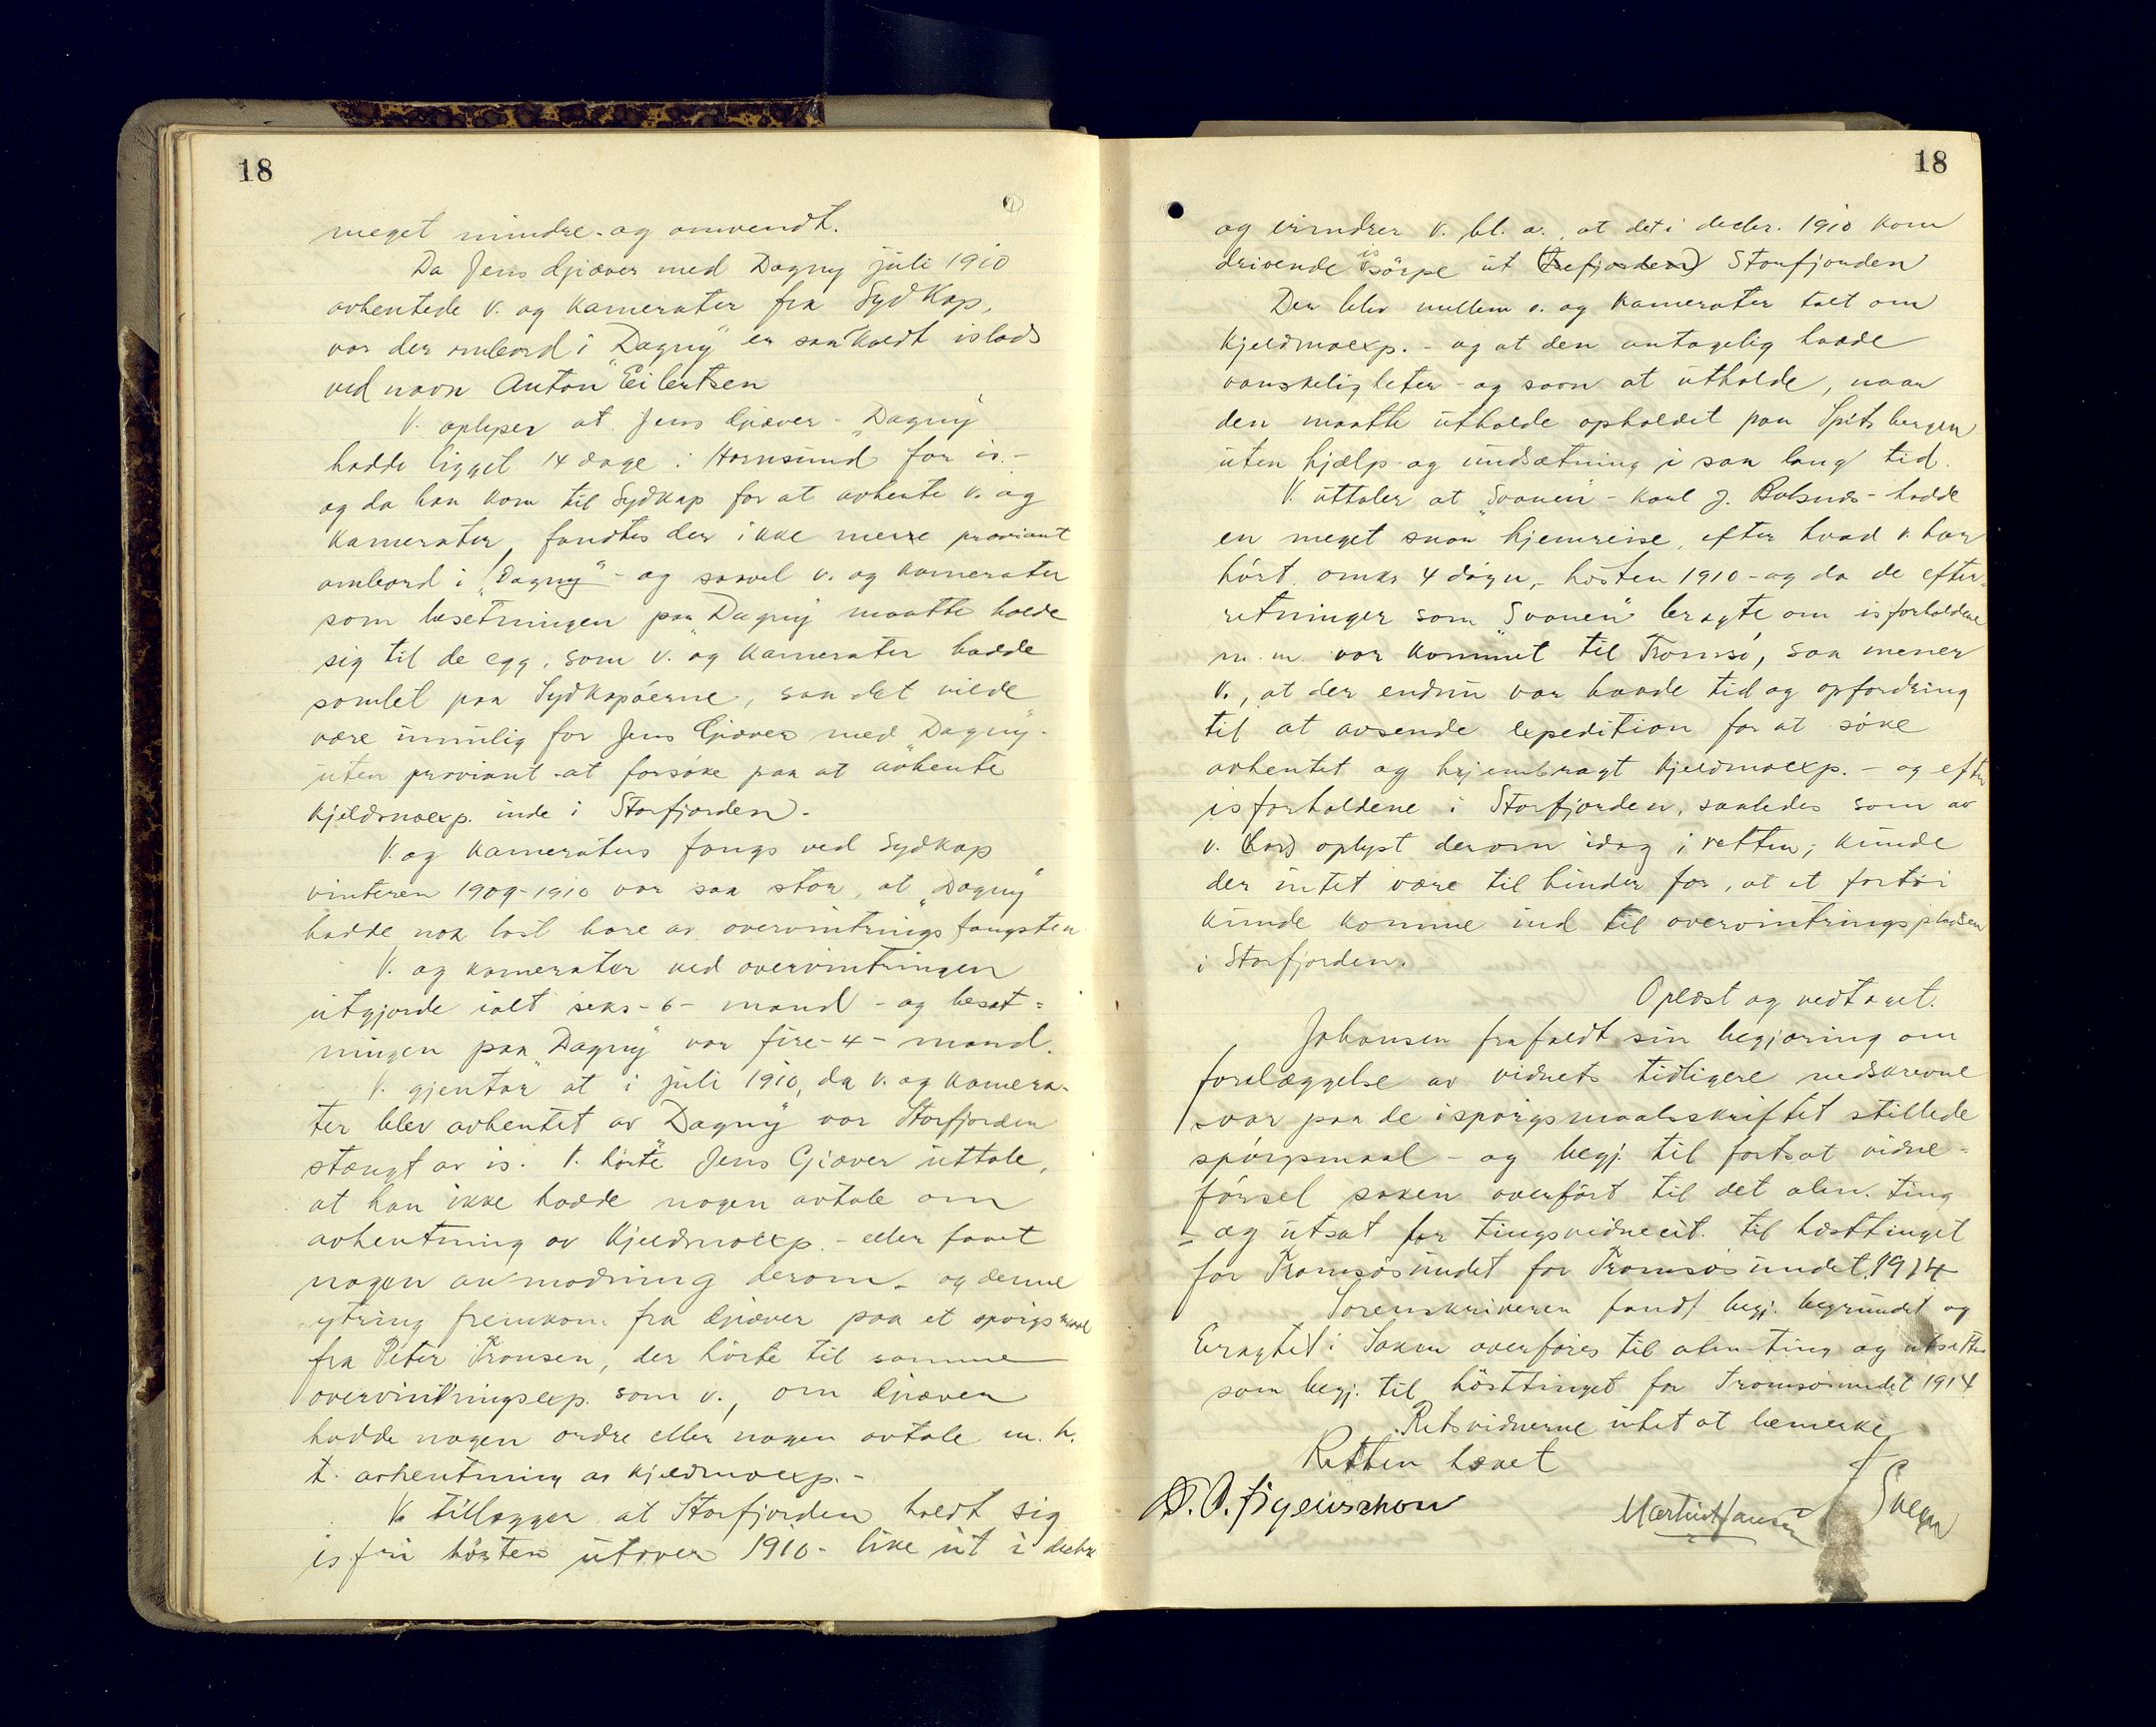 18
meget mindre - og omvendt.
Da Jens Giæver med Dagny juli 1910
avhentede v. og kamerater fra Sydkap,
var der ombord i "Dagny" en saakaldt islods
ved navn Anton Eilertsen
V. oplyser at Jens Giæver - "Dagny"
hadde ligget 14 dage i Hornsund for is. -
og da han kom til Sydkap for at avhente v. og
kamerater, fandtes der ikke mere proviant
ombord i "Dagny" - og saavel v. og kamerater
som besetningen paa "Dagny" maatte holde
sig til de egg, som v. og kamerater hadde
samlet paa Sydkapøerne, saa det vilde
være umulig for Jens Giæver med "Dagny" -
uten proviant - at forsøke paa at avhente
Kjeldsnoexp. inde i Storfjorden.
V. og kameraters fangs ved Sydkap
vinteren 1909-1910 var saa stor, at "Dagny"
hadde nok last bare av overvintringsfangsten
V. og kamerater ved overvintringen
utgjorde ialt seks - 6 - mand - og besæt=
ningen paa "Dagny" var fire - 4 - mand.
V. gjentar at i juli 1910, da v. og kamera-
ter blev avhentet av "Dagny" var Storfjorden
stængt av is. V. hørte Jens Giæver uttale,
at han ikke hadde nogen avtale om
avhentning av Kjeldsnoexp. - eller faaet
nogen anmodning derom - og denne
ytring fremkom fra Giæver paa et spørgsmaal
fra Peter Tronsen, der hørte til samme
overvintringsexp. som v., om Giæver
hadde nogen ordre eller nogen avtale m. h.
t. avhentning av Kjeldsnoexp. -
V. tillægger at Storfjorden holdt sig
isfri høsten utover 1910 - like ut i decbr.
18
og erindrer v. bl. a., at det i decbr. 1910 kom
drivende issørpe ut (Trefjorden) Storfjorden
Der blev mellem v. og kamerater talt om
Kjeldsnoexp. - og at den antagelig hadde
vanskeligheter - og savn at utholde, naar
den maatte utholde opholdet paa Spitsbergen
uten hjælp og undsætning i saa lang tid.
V. uttaler at "Svanen" - Karl J. - hadde
en meget snar hjemreise, efter hvad v. har
hørt. omkr 4 døgn, - høsten 1910 - og da de efter-
retninger som "Svanen" bragte om isforholdene
m. m. var kommet til Tromsø, saa mener
v., at der endnu var baade tid og opfordring
til at avsende expedition for at søke
avhentet og hjembragt Kjeldsnoexp. - og efter
isforholdene i Storfjorden, saaledes som av
v. (har) oplyst derom idag i retten, kunde
der intet være til hinder for, at et fartøi
kunde komme ind til overvintringspladsen
i Storfjorden.
Oplæst og vedtaget.
Johansen frafaldt sin begjæring om
forelæggelse av vidnets tidligere nedskrevne
svar paa de i spørgsmaalsskriftet stillede
spørgsmaal - og begj. til fortsat vidne-
førsel saken overført til det alm. ting
- og utsat for tingsvidneeit. til høsttinget
for Tromsøsundet for Tromsøsundet 1914
Sorenskriveren fandt begj. begrundet og
Eragtet: Saken overføres til alm. ting og utsættes
som begj. til høsttinget for Tromsøsundet 1914
Retsvidnerne intet at bemerke
Retten hævet
Martin Hansen